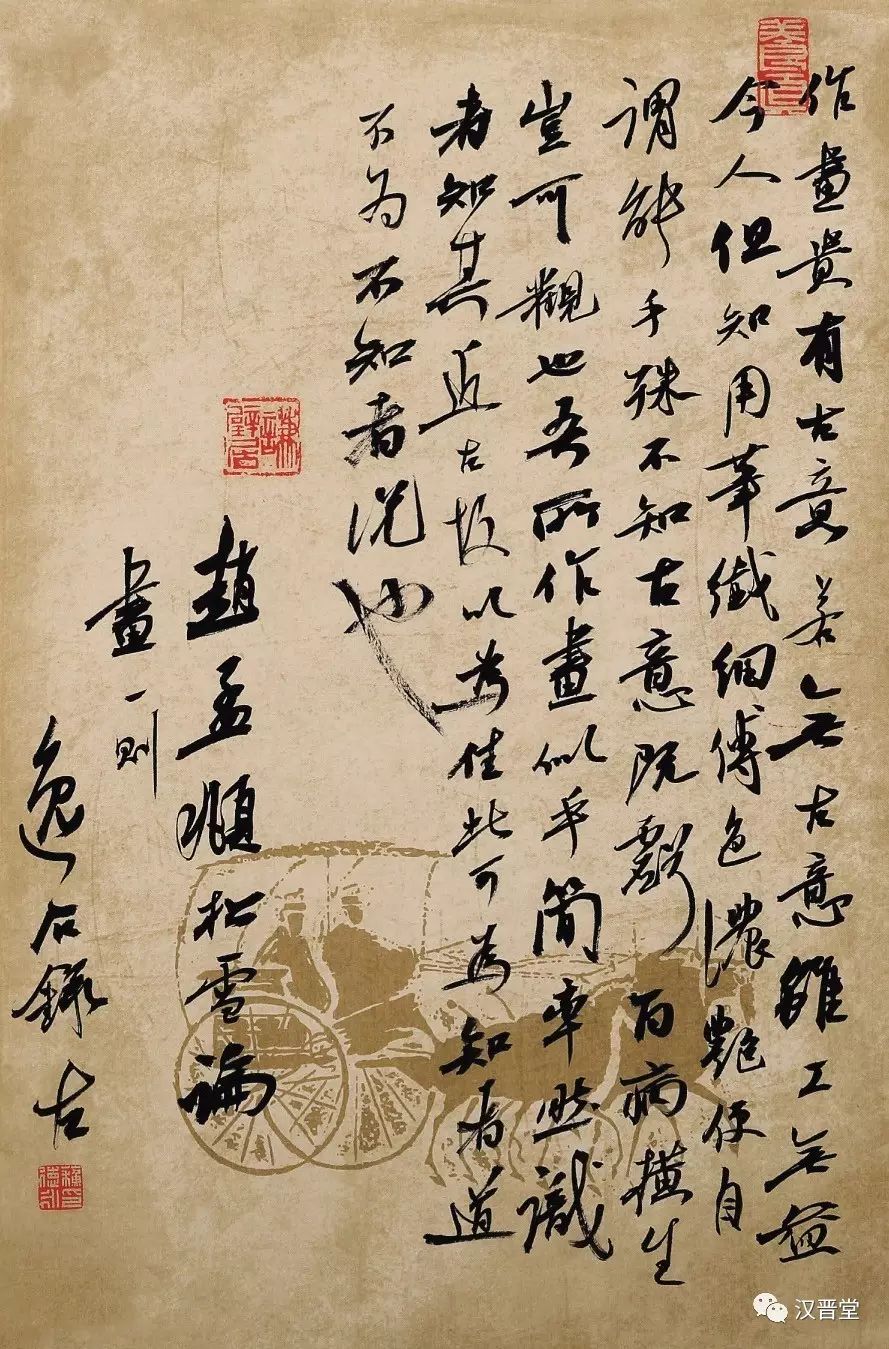 作畫貴有古意若無古意雖工無益
今人但知用筆纖細傅色濃艷便自
謂能手殊不知古意既虧百病橫生
豈可觀也吾所作畫似乎簡率然識
者知其近古故以為佳此可為知者道
不為不知者说也
趙孟頫松雪論
畫一則
逸石錄古
汉晋堂